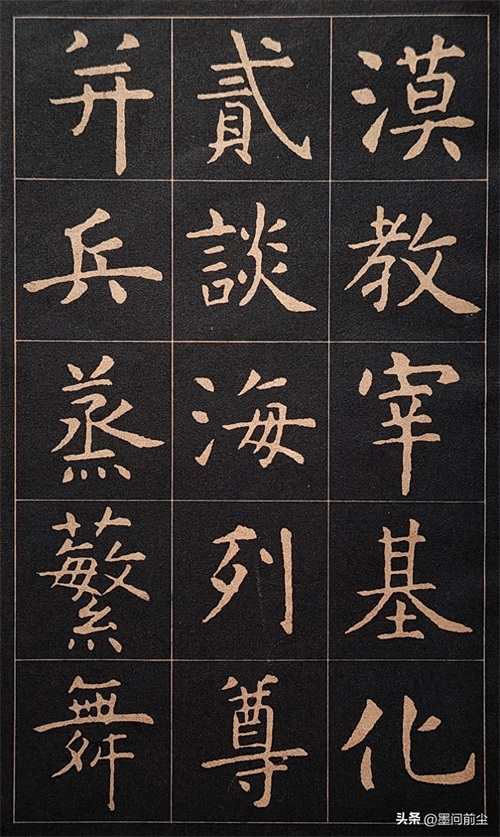 漠教宰基化
貳談海列尊
并兵蒸蘩舞
头条 @墨问前尘